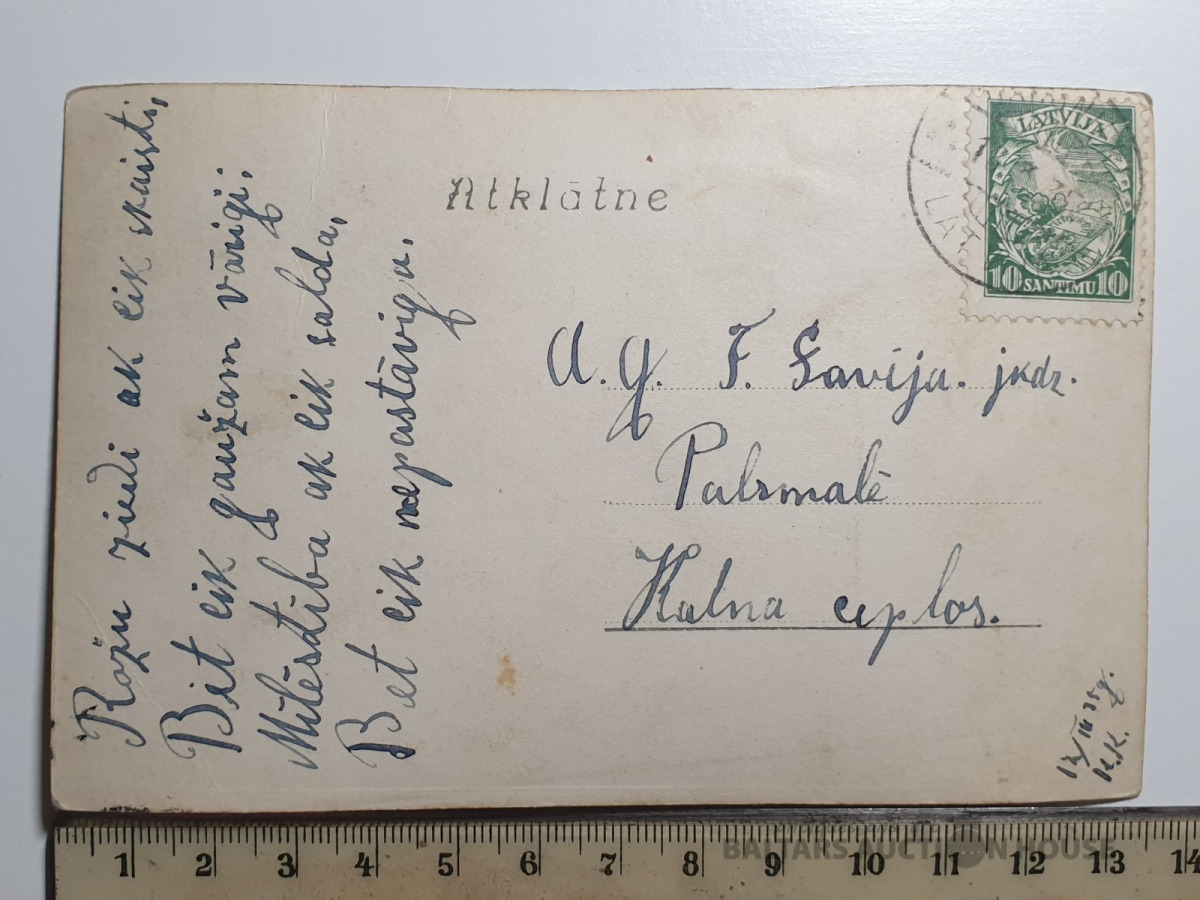 Rožu ziedi ak cik skaisti,
Bet cik gaužam vārīgi;
Mīlestība ak cik salda,
Bet cik nepastāvīga.
Atklātne
LATVIJA
10 SANTIMU 10
LAT
A. g. F. Savija. jkdz.
Palzmalē
Kalna ceplos.
12/III 35 g.
K.K.
1 2 3 4 5 6 7 8 9 10 11 12 13 14
BALTARS AUCTION HOUSE